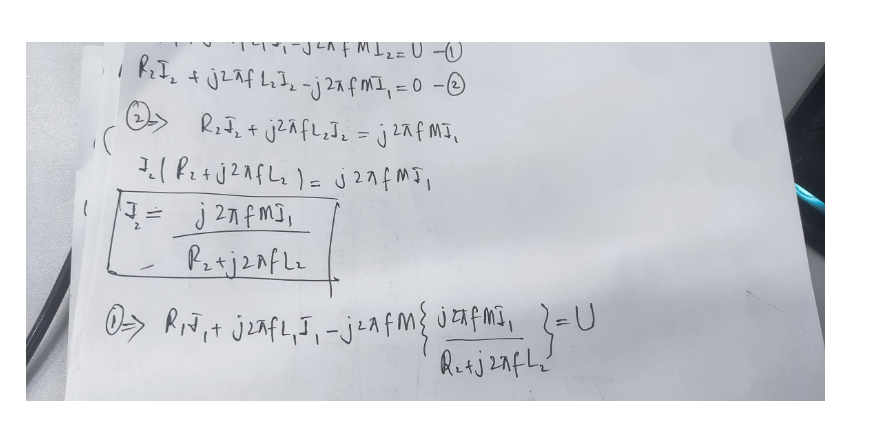 I₁ - j2πfMI₂ = U -①
R₂I₂ + j2πfL₂I₂ - j2πfMI₁ = 0 -②
②⇒ R₂I₂ + j2πfL₂I₂ = j2πfMI₁
I₂(R₂ + j2πfL₂) = j2πfMI₁
I₂ = j2πfMI₁
R₂ + j2πfL₂
①⇒ R₁I₁ + j2πfL₁I₁ - j2πfM{ j2πfMI₁ } = U
R₂ + j2πfL₂